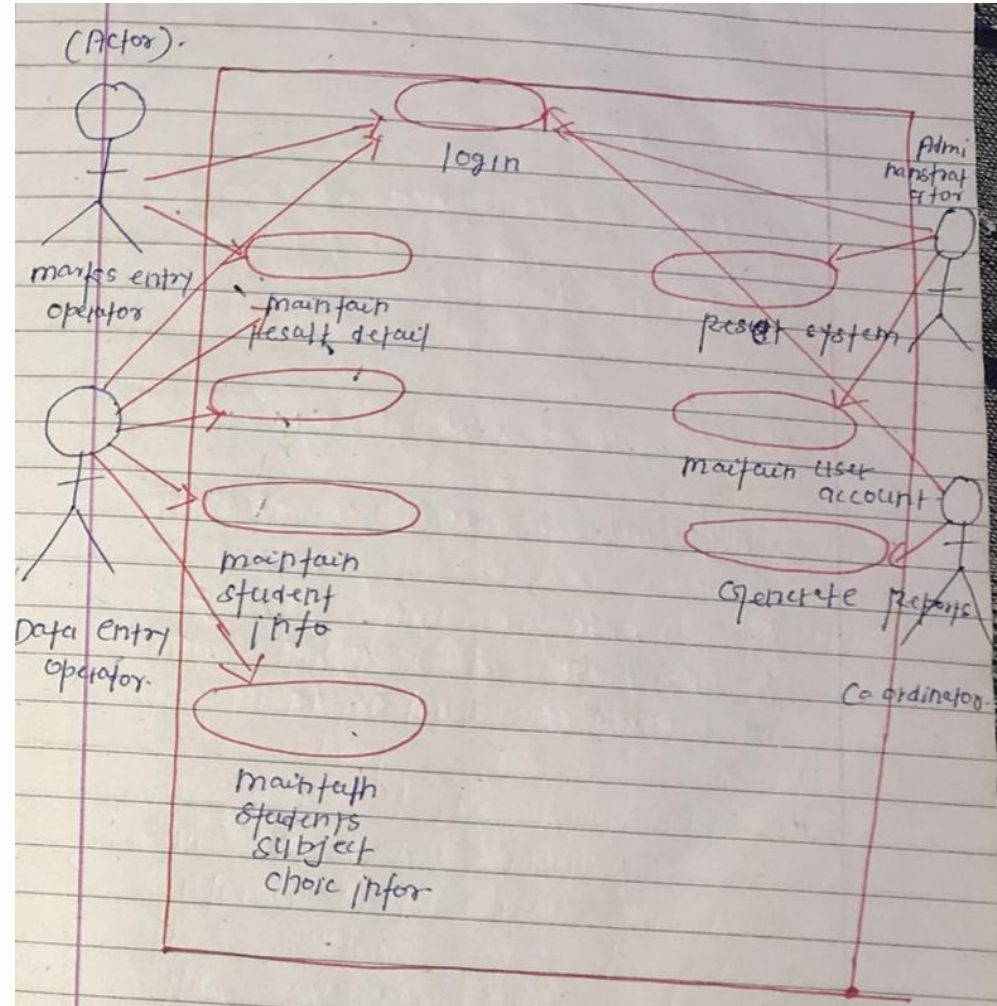 (Actor).
login
Admi
nanstrat
ator
marks entry
operator
maintain
resalt detail
reset system
maitain user
account
maintain
student
info
Generate Reports
Data Entry
operator.
Co ordinator.
maintain
students
subject
choic infor